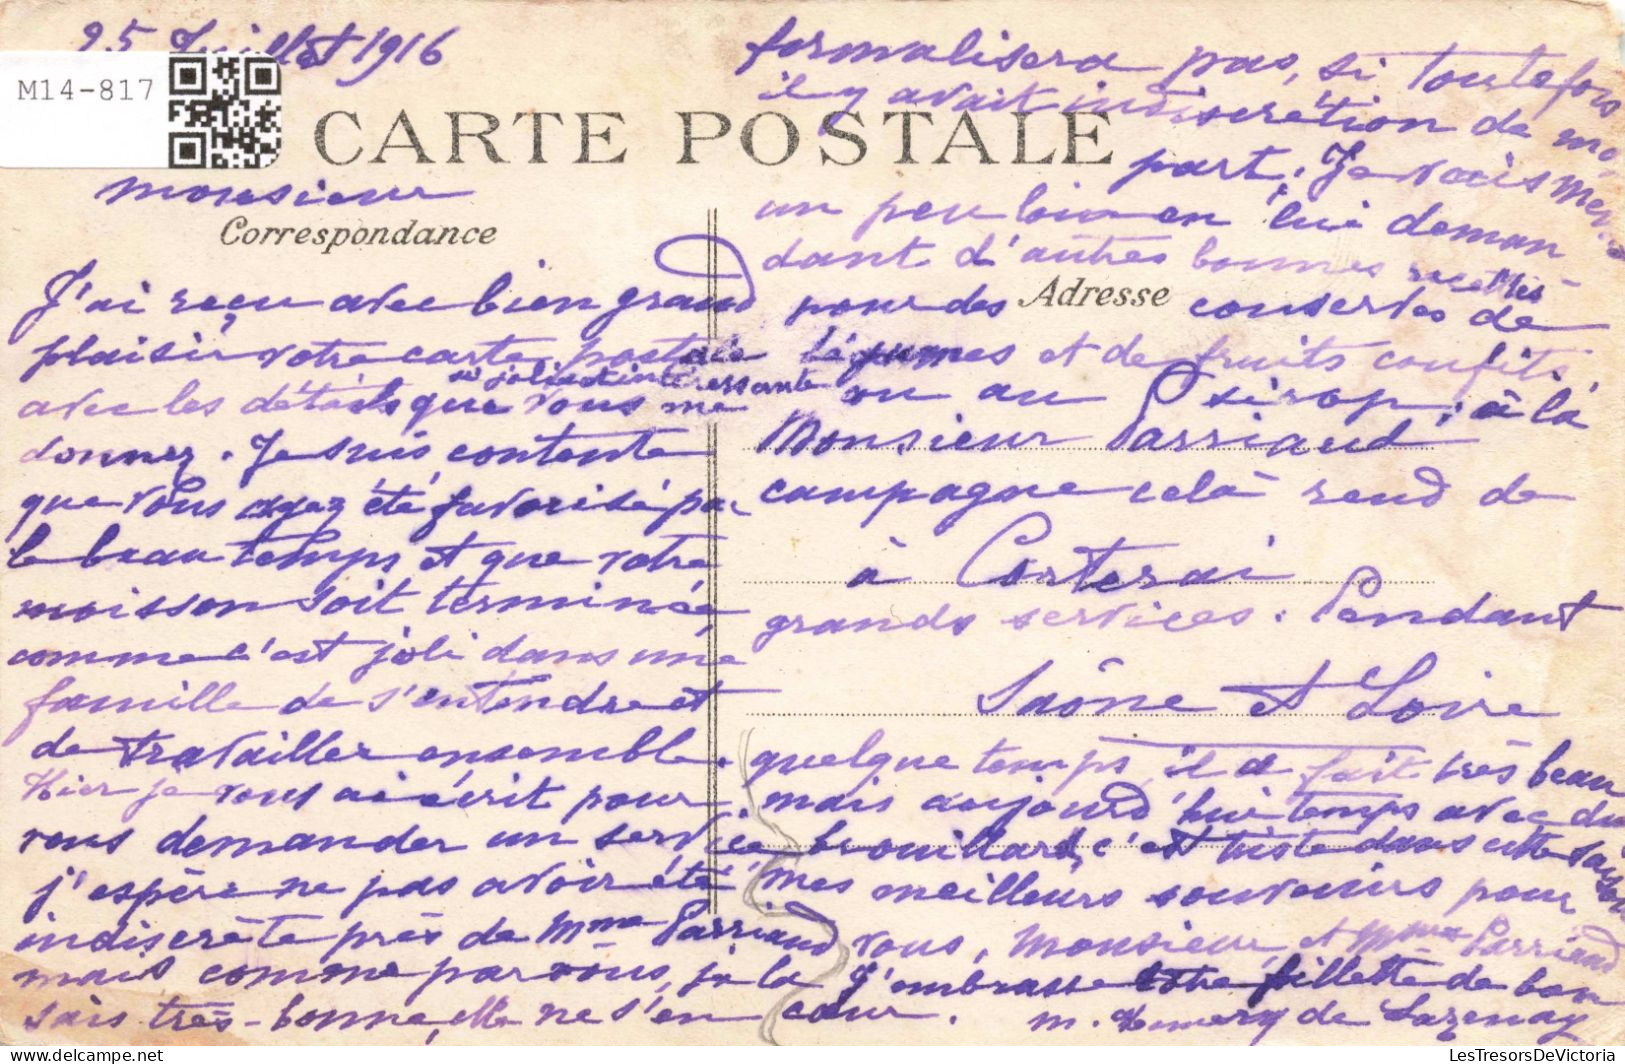 25 Juillet 1916
M14-817
CARTE POSTALE
Monsieur
Correspondance
J'ai reçu avec bien grand
plaisir votre carte postale
si jolie et intéressante
avec les détails que vous me
donnez. Je suis contente
que vous ayez été favorisé par
le beau temps et que votre
moisson soit terminée,
comme c'est joli dans une
famille de s'entendre et
de travailler ensemble.
Hier je vous ai écrit pour
vous demander un service
j'espère ne pas avoir été
indiscrète près de Mme Parriaud
mais comme par vous, je la
sais très-bonne, elle ne s'en
formalisera pas, si toutefois
il y avait indiscrétion de ma
part. Je vais même
un peu loin en lui deman
dant d'autres bonnes recettes
Adresse
pour des conserves de
légumes et de fruits confits
ou au sirop, à la
Monsieur Parriaud
campagne celà rend de
à Corterai
grands services. Pendant
Saône et Loire
quelque temps, il a fait très beau
mais aujourd'hui temps avec du
brouillard, c'est triste dans cette saison
mes meilleurs souvenirs pour
vous, Monsieur, et Mme Parriaud
J'embrasse votre fillette de bon
cœur. M. de Lazenay
LesTresorsDeVictoria